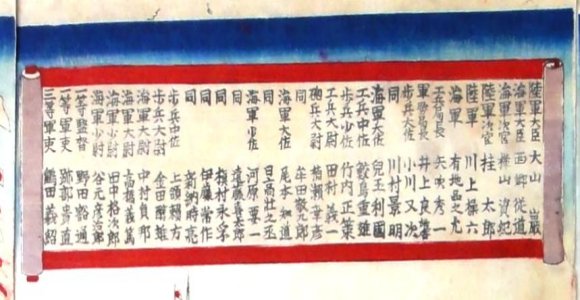 陸軍大臣 大山 巌
海軍大臣 西郷従道
海軍次官 樺山資紀
陸軍次官 桂太郎
陸軍 川上操六
海軍 有地品之允
工兵局長 矢吹秀一
軍務局長 井上良馨
歩兵大佐 小川又次
同 川村景明
海軍大佐 兒玉利國
工兵中佐 鮫島重雄
歩兵少佐 竹内正策
工兵大尉 田村義一
砲兵大尉 楢瀬幸彦
同 牟田敬九郎
海軍大佐 尾本知道
同 日高壮之丞
海軍少佐 河原要一
同 遠藤喜太郎
同 植村永孚
同 伊藤常作
同 新納時亮
歩兵中佐 上領頼方
歩兵大尉 金田
海軍大尉 中村貞邦
海軍大尉 高橋義篤
海軍少尉 田中格次郎
海軍少尉 谷元彦治郎
一等監督 野田豁通
一等軍吏 跡部當直
三等軍吏 鶴田義韶